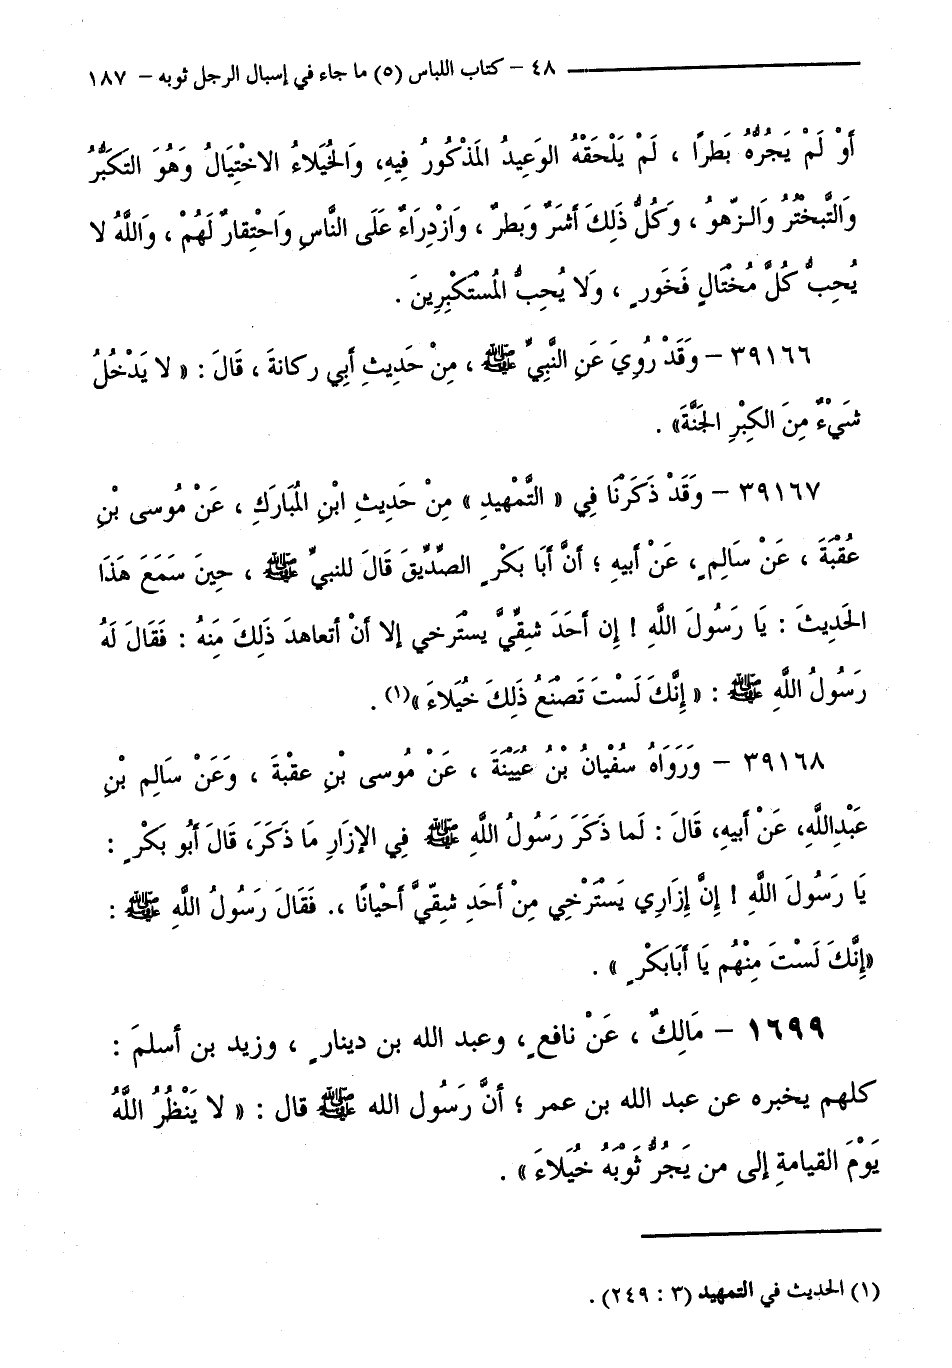 ٤٨ – كتاب اللباس (٥) ما جاء في إسبال الرجل ثوبه – ١٨٧
أَوْ لَمْ يَجُرُّهُ بَطرًا ، لَمْ يَلْحَقْهُ الوَعِيدُ المَذْكُورُ فِيهِ، وَالخُيَلاءُ الاخْتِيَالُ وَهُوَ التَكَبُّرُ
وَالتَّبخْتُرُ وَالـزّهو ، وَكُلُّ ذَلِكَ أشَرٌ وَبَطرٌ ، وَازْدِرَاءٌ عَلَى النَّاسِ وَاحْتِقارٌ لَهُمْ ، وَاللَّهُ لا
يُحِبُّ كُلَّ مُخْتَالٍ فَخُورٍ ، وَلا يُحِبُّ المُسْتَكْبِرِينَ .
٣٩١٦٦ – وَقَدْ رُوِيَ عَنِ النَّبِيِّ ﷺ ، مِنْ حَدِيثِ أَبِي ركانةَ ، قَالَ : « لا يَدْخُلُ
شَيْءٌ مِنَ الكِبْرِ الجَنَّةَ» .
٣٩١٦٧ – وَقَدْ ذَكَرْنَا فِي « التَّمْهِيدِ » مِنْ حَدِيثِ ابْنِ المُبَارَكِ ، عَنْ مُوسى بْنِ
عُقْبَةَ ، عَنْ سَالِمٍ ، عَنْ أبيهِ ؛ أنَّ أبَا بَكْرٍ الصِّدِّيقَ قَالَ للنبيِّ ﷺ ، حِينَ سَمَعَ هَذَا
الحَدِيثَ : يَا رَسُولَ اللَّهِ ! إن أحَدَ شقِيَّ يستَرخي إلا أنْ أتعاهدَ ذَلِكَ مَنهُ : فَقَالَ لَهُ
رَسُولُ اللَّهِ ﷺ : « إنَّكَ لَسْتَ تَصْنَعُ ذَلِكَ خُيَلاءَ »(١) .
٣٩١٦٨ – وَرَوَاهُ سُفْيانُ بْنُ عُيَيْنَةَ ، عَنْ مُوسى بْنِ عقْبةَ ، وَعَنْ سَالِمِ بْنِ
عَبْدِاللَّهِ، عَنْ أبيهِ، قَالَ : لَما ذَكَرَ رَسُولُ اللَّهِ ﷺ فِي الإزَارِ مَا ذَكَرَ، قَالَ أَبُو بَكْرٍ :
يَا رَسُولَ اللَّهِ ! إنَّ إزَارِي يَسْتَرْخِي مِنْ أحَدِ شقِّيَّ أحْيانًا ،. فَقَالَ رَسُولُ اللَّهِ ﷺ :
«إنَّكَ لَسْتَ مِنْهُم يَا أَبَابَكْرٍ » .
١٦٩٩ – مَالِكٌ ، عَنْ نافعٍ، وعبد الله بن دينارٍ ، وزيد بن أسلمَ :
كلهم يخبره عن عبد الله بن عمر ؛ أنَّ رَسُول الله ﷺ قال : « لا يَنْظُرُ اللَّهُ
يَوْمَ القيامةِ إلى من يَجُرُّ ثَوْبَهُ خُيَلاءَ» .
(١) الحديث في التمهيد (٣ : ٢٤٩) .